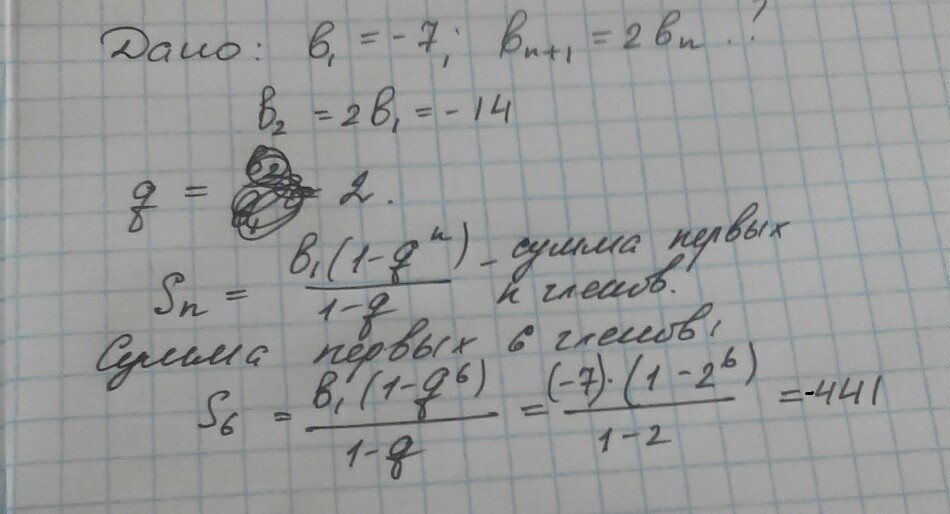 Дано: b₁ = -7; bₙ₊₁ = 2bₙ.?
b₂ = 2b₁ = -14
q = 2.
Sₙ = b₁(1-qⁿ) / 1-q - сумма первых n членов.
Сумма первых 6 членов:
S₆ = b₁(1-q⁶) / 1-q = (-7)·(1-2⁶) / 1-2 = -441